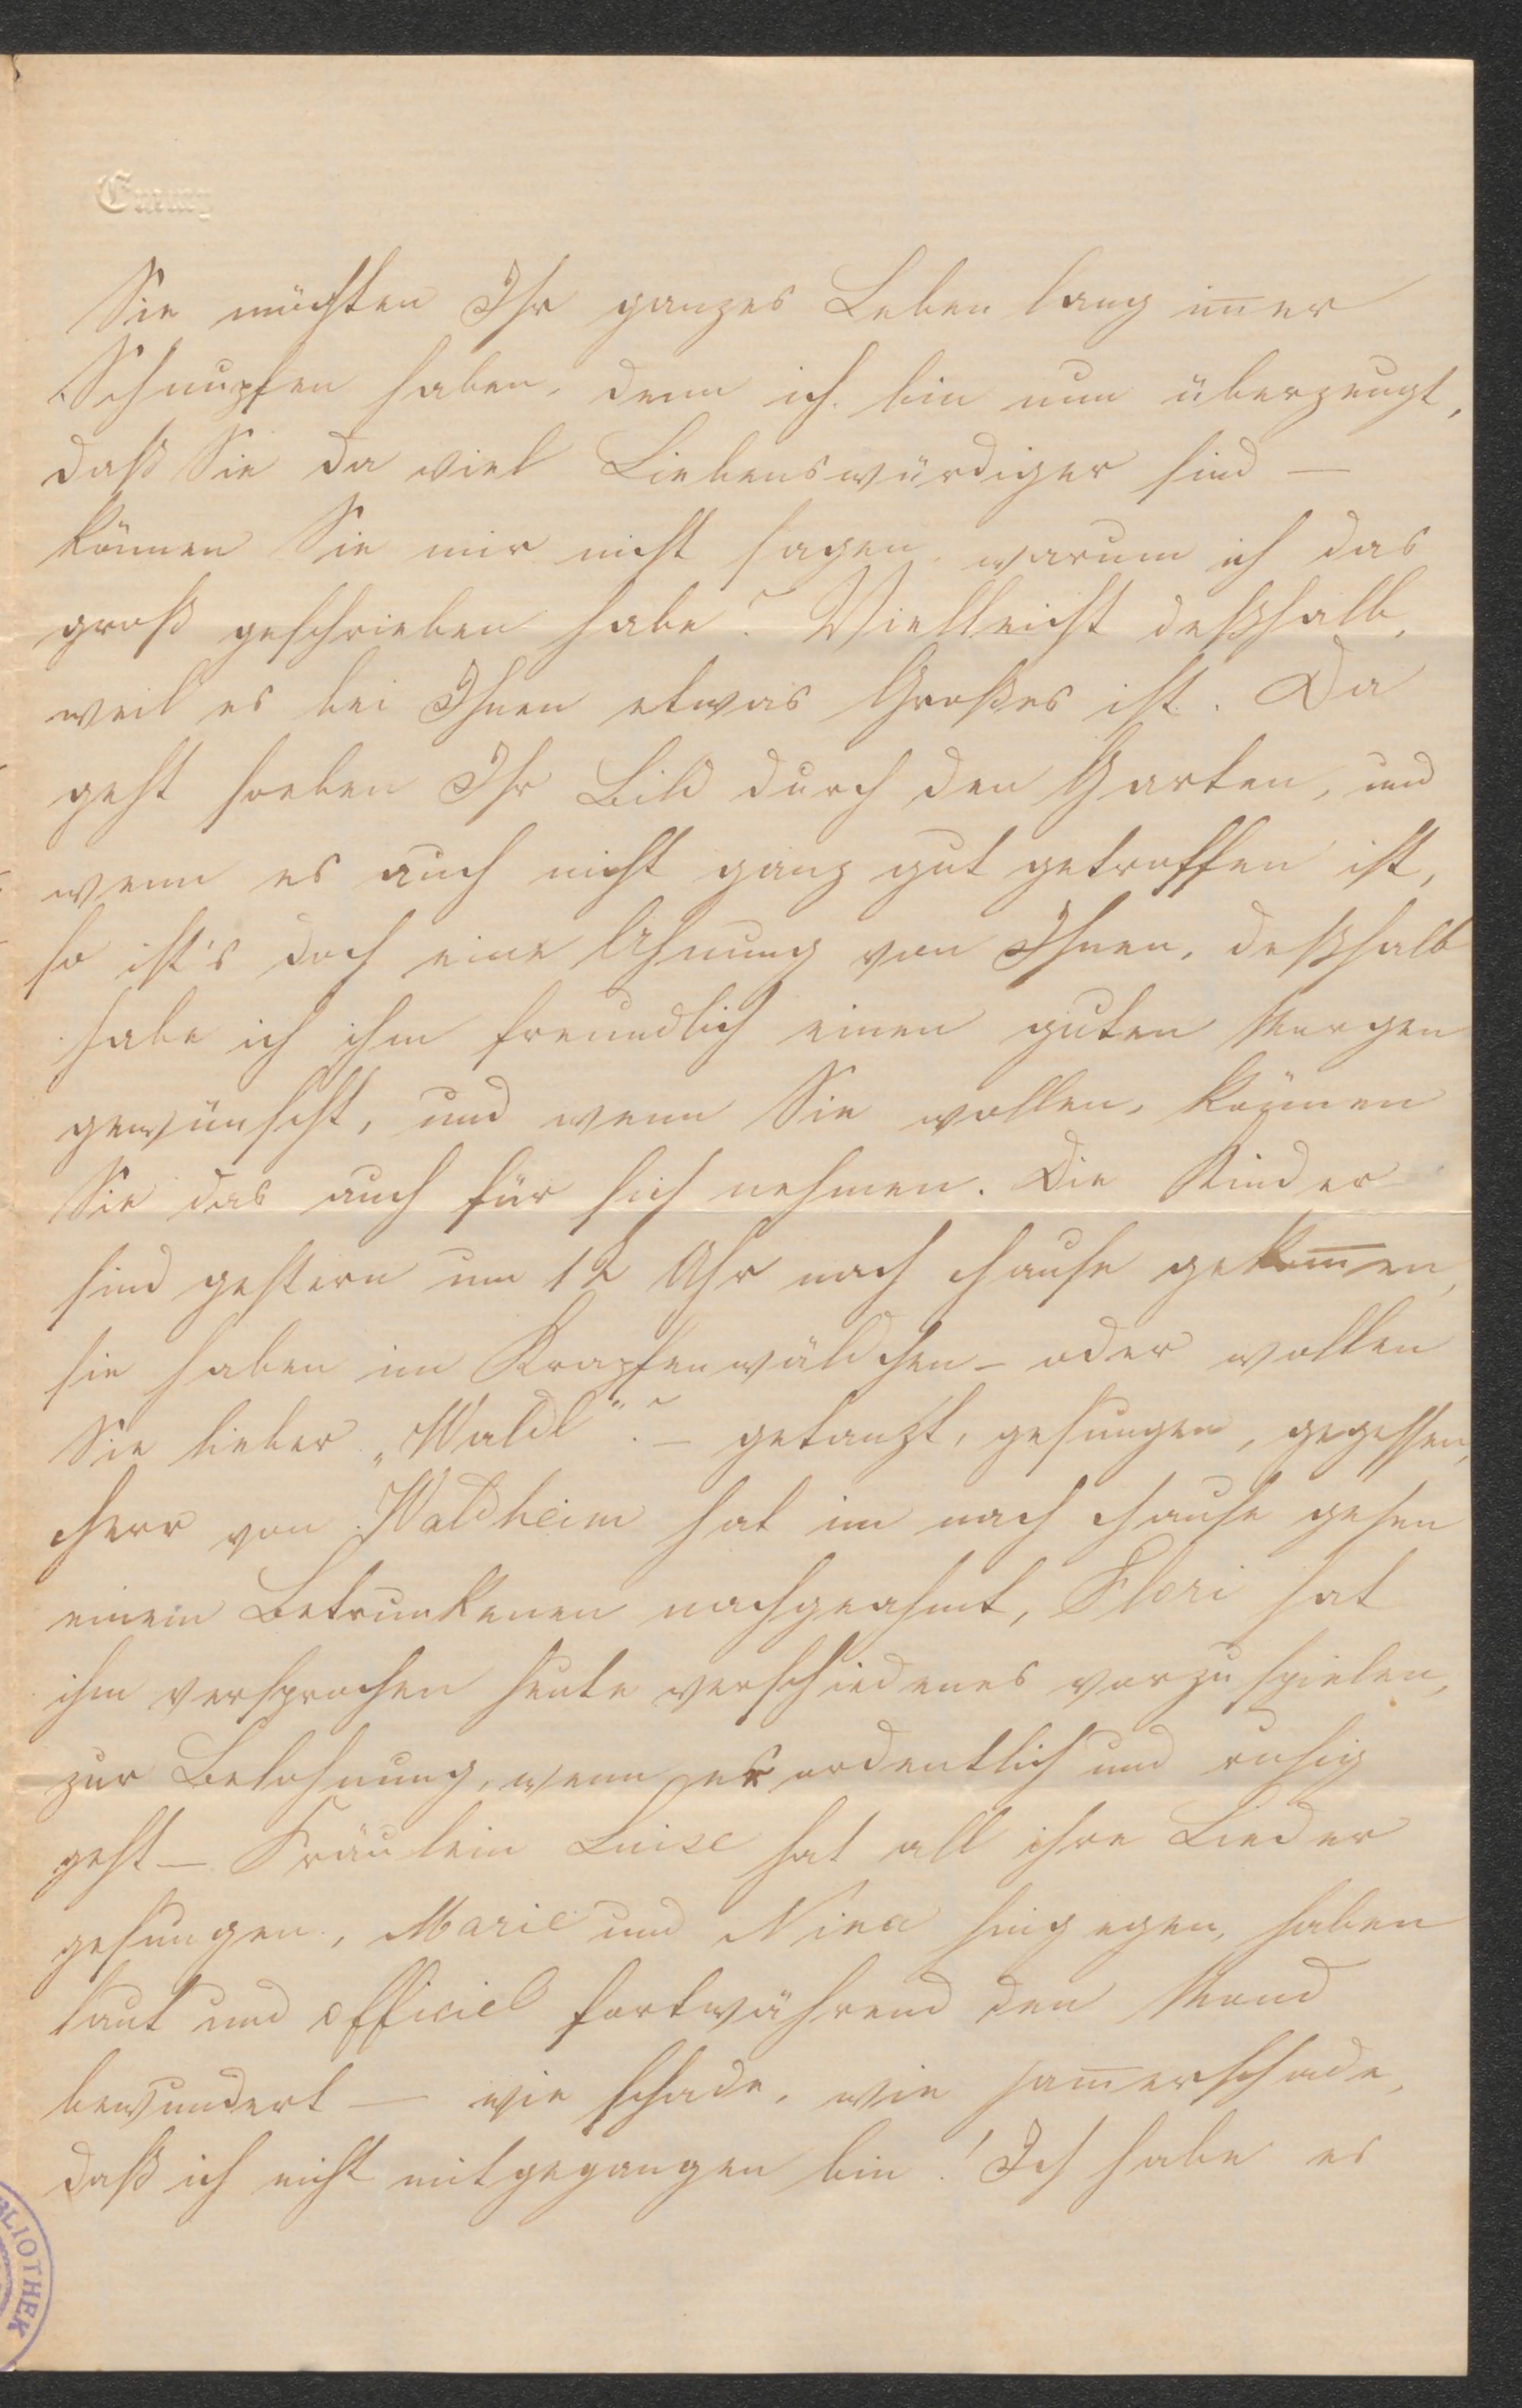 Emmy
Sie möchten Ihr ganzes Leben lang im̅er
Schnupfen haben, denn ich bin nun überzeugt,
daß Sie da viel Liebenswürdiger sind —
können Sie mir nicht sagen, warum ich das
groß geschrieben habe? Vielleicht deßhalb,
weil es bei Ihnen etwas Großes ist. Da
geht soeben Ihr Bild durch den Garten, und
wenn es auch nicht ganz gut getroffen ist,
so ist's doch eine Ahnung von Ihnen, deßhalb
habe ich ihm freundlich einen guten Morgen
gewünscht, und wenn Sie wollen, können
Sie das auch für sich nehmen. Die Kinder
sind gestern um 12 Uhr nach Hause gekom̅en,
sie haben im Krapfenwäldchen – oder wollen
Sie lieber „Waldl"? – getanzt, gesungen, gegessen,
Herr von Waldheim hat im nach Hause gehen
einem Betrunkenen nachgeahmt, Flori hat
ihm versprochen heute verschiedenes vorzuspielen,
zur Belohnung, wenn er ordentlich und ruhig
geht – Fräulein Luise hat all ihre Lieder
gesungen, Marie und Nina hingegen, haben
laut und officiel fortwährend den Mond
bewundert — wie schade, wie jam̅erschade,
daß ich nicht mitgegangen bin! Ich habe es
BLIOTHEK